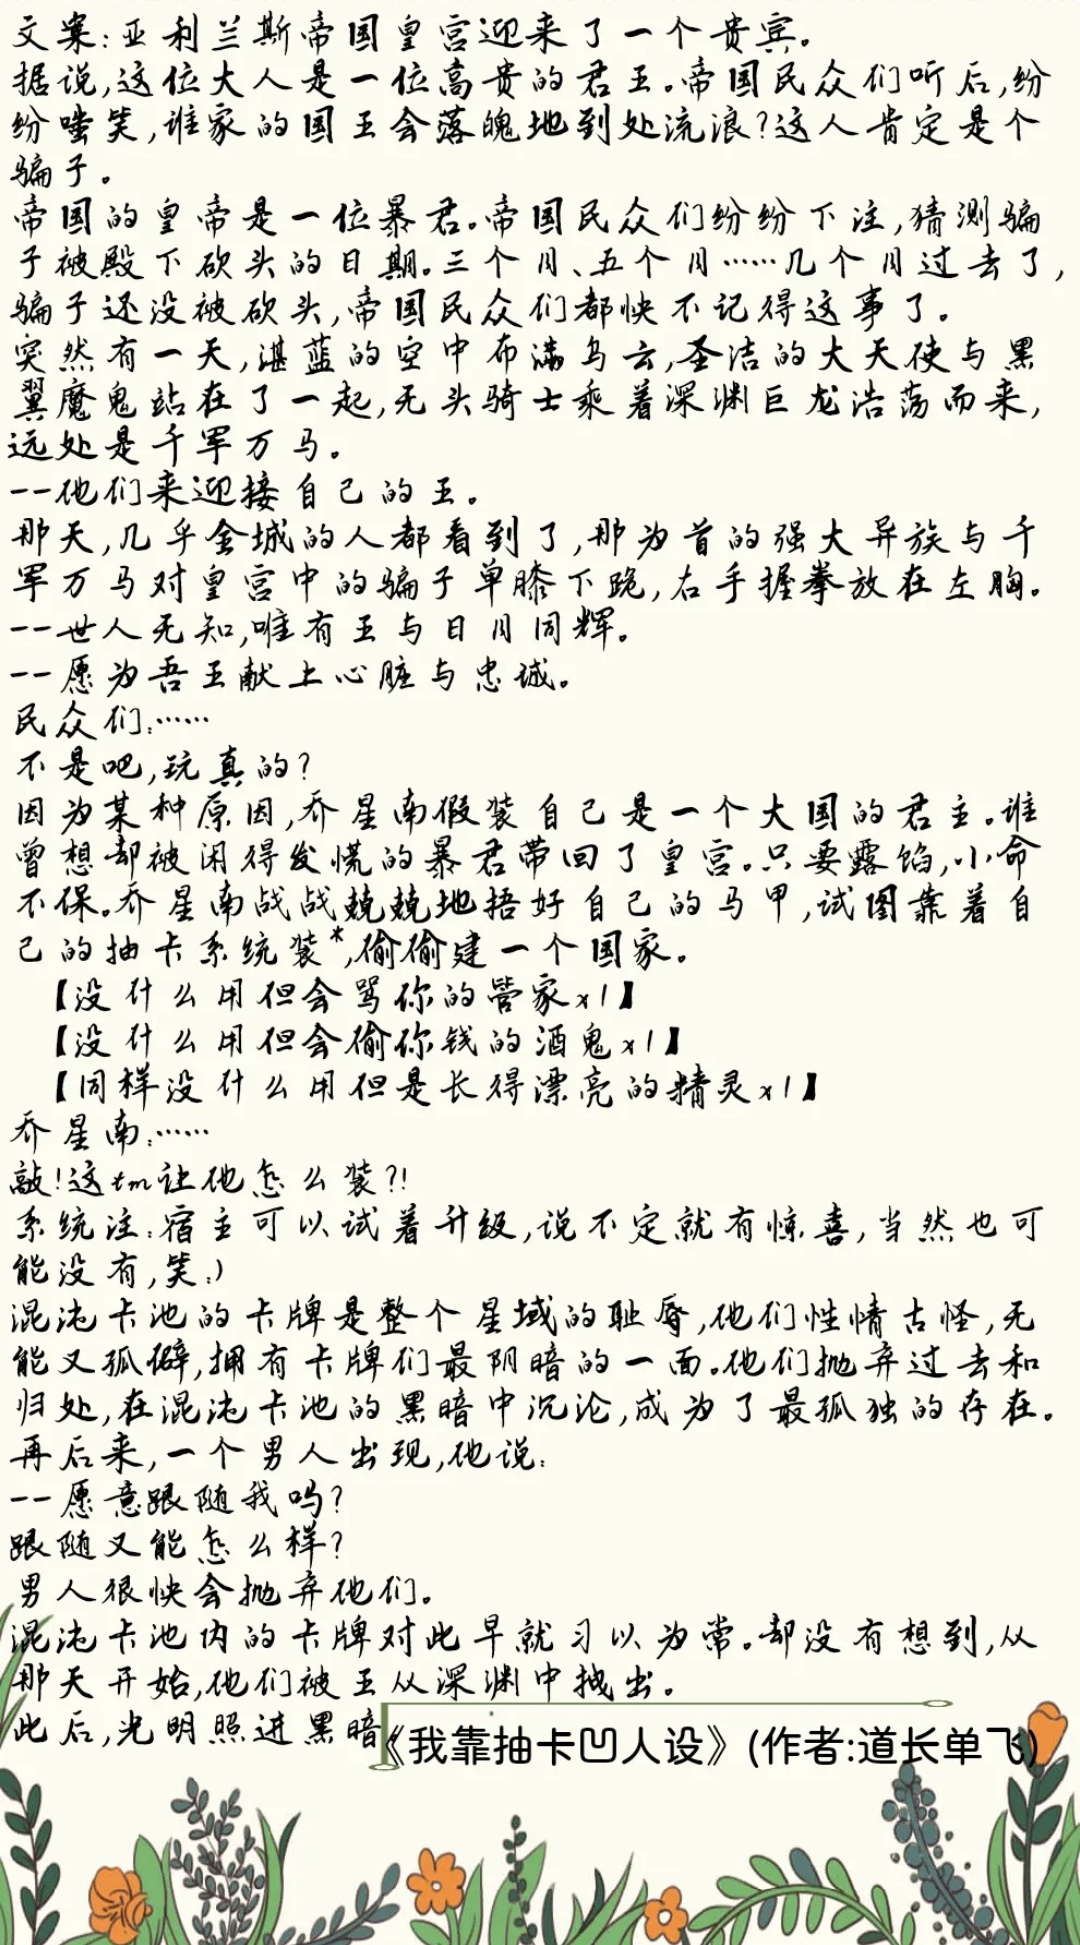 文案:亚利兰斯帝国皇宫迎来了一个贵宾。
据说,这位大人是一位高贵的君王。帝国民众们听后,纷
纷嗤笑,谁家的国王会落魄地到处流浪?这人肯定是个
骗子。
帝国的皇帝是一位暴君。帝国民众们纷纷下注,猜测骗
子被殿下砍头的日期。三个月、五个月……几个月过去了,
骗子还没被砍头,帝国民众们都快不记得这事了。
突然有一天,湛蓝的空中布满乌云,圣洁的大天使与黑
翼魔鬼站在了一起,无头骑士乘着深渊巨龙浩荡而来,
远处是千军万马。
--他们来迎接自己的王。
那天,几乎全城的人都看到了,那为首的强大异族与千
军万马对皇宫中的骗子单膝下跪,右手握拳放在左胸。
--世人无知,唯有王与日月同辉。
--愿为吾王献上心脏与忠诚。
民众们:……
不是吧,玩真的?
因为某种原因,乔星南假装自己是一个大国的君主。谁
曾想却被闲得发慌的暴君带回了皇宫。只要露馅,小命
不保。乔星南战战兢兢地捂好自己的马甲,试图靠着自
己的抽卡系统装*,偷偷建一个国家。
【没什么用但会骂你的管家x1】
【没什么用但会偷你钱的酒鬼x1】
【同样没什么用但是长得漂亮的精灵x1】
乔星南:……
敲!这tm让他怎么装?!
系统注:宿主可以试着升级,说不定就有惊喜,当然也可
能没有,笑:)
混沌卡池的卡牌是整个星域的耻辱,他们性情古怪,无
能又孤僻,拥有卡牌们最阴暗的一面。他们抛弃过去和
归处,在混沌卡池的黑暗中沉沦,成为了最孤独的存在。
再后来,一个男人出现,他说:
--愿意跟随我吗?
跟随又能怎么样?
男人很快会抛弃他们。
混沌卡池内的卡牌对此早就习以为常。却没有想到,从
那天开始,他们被王从深渊中拽出。
此后,光明照进黑暗
《我靠抽卡凹人设》(作者:道长单飞)